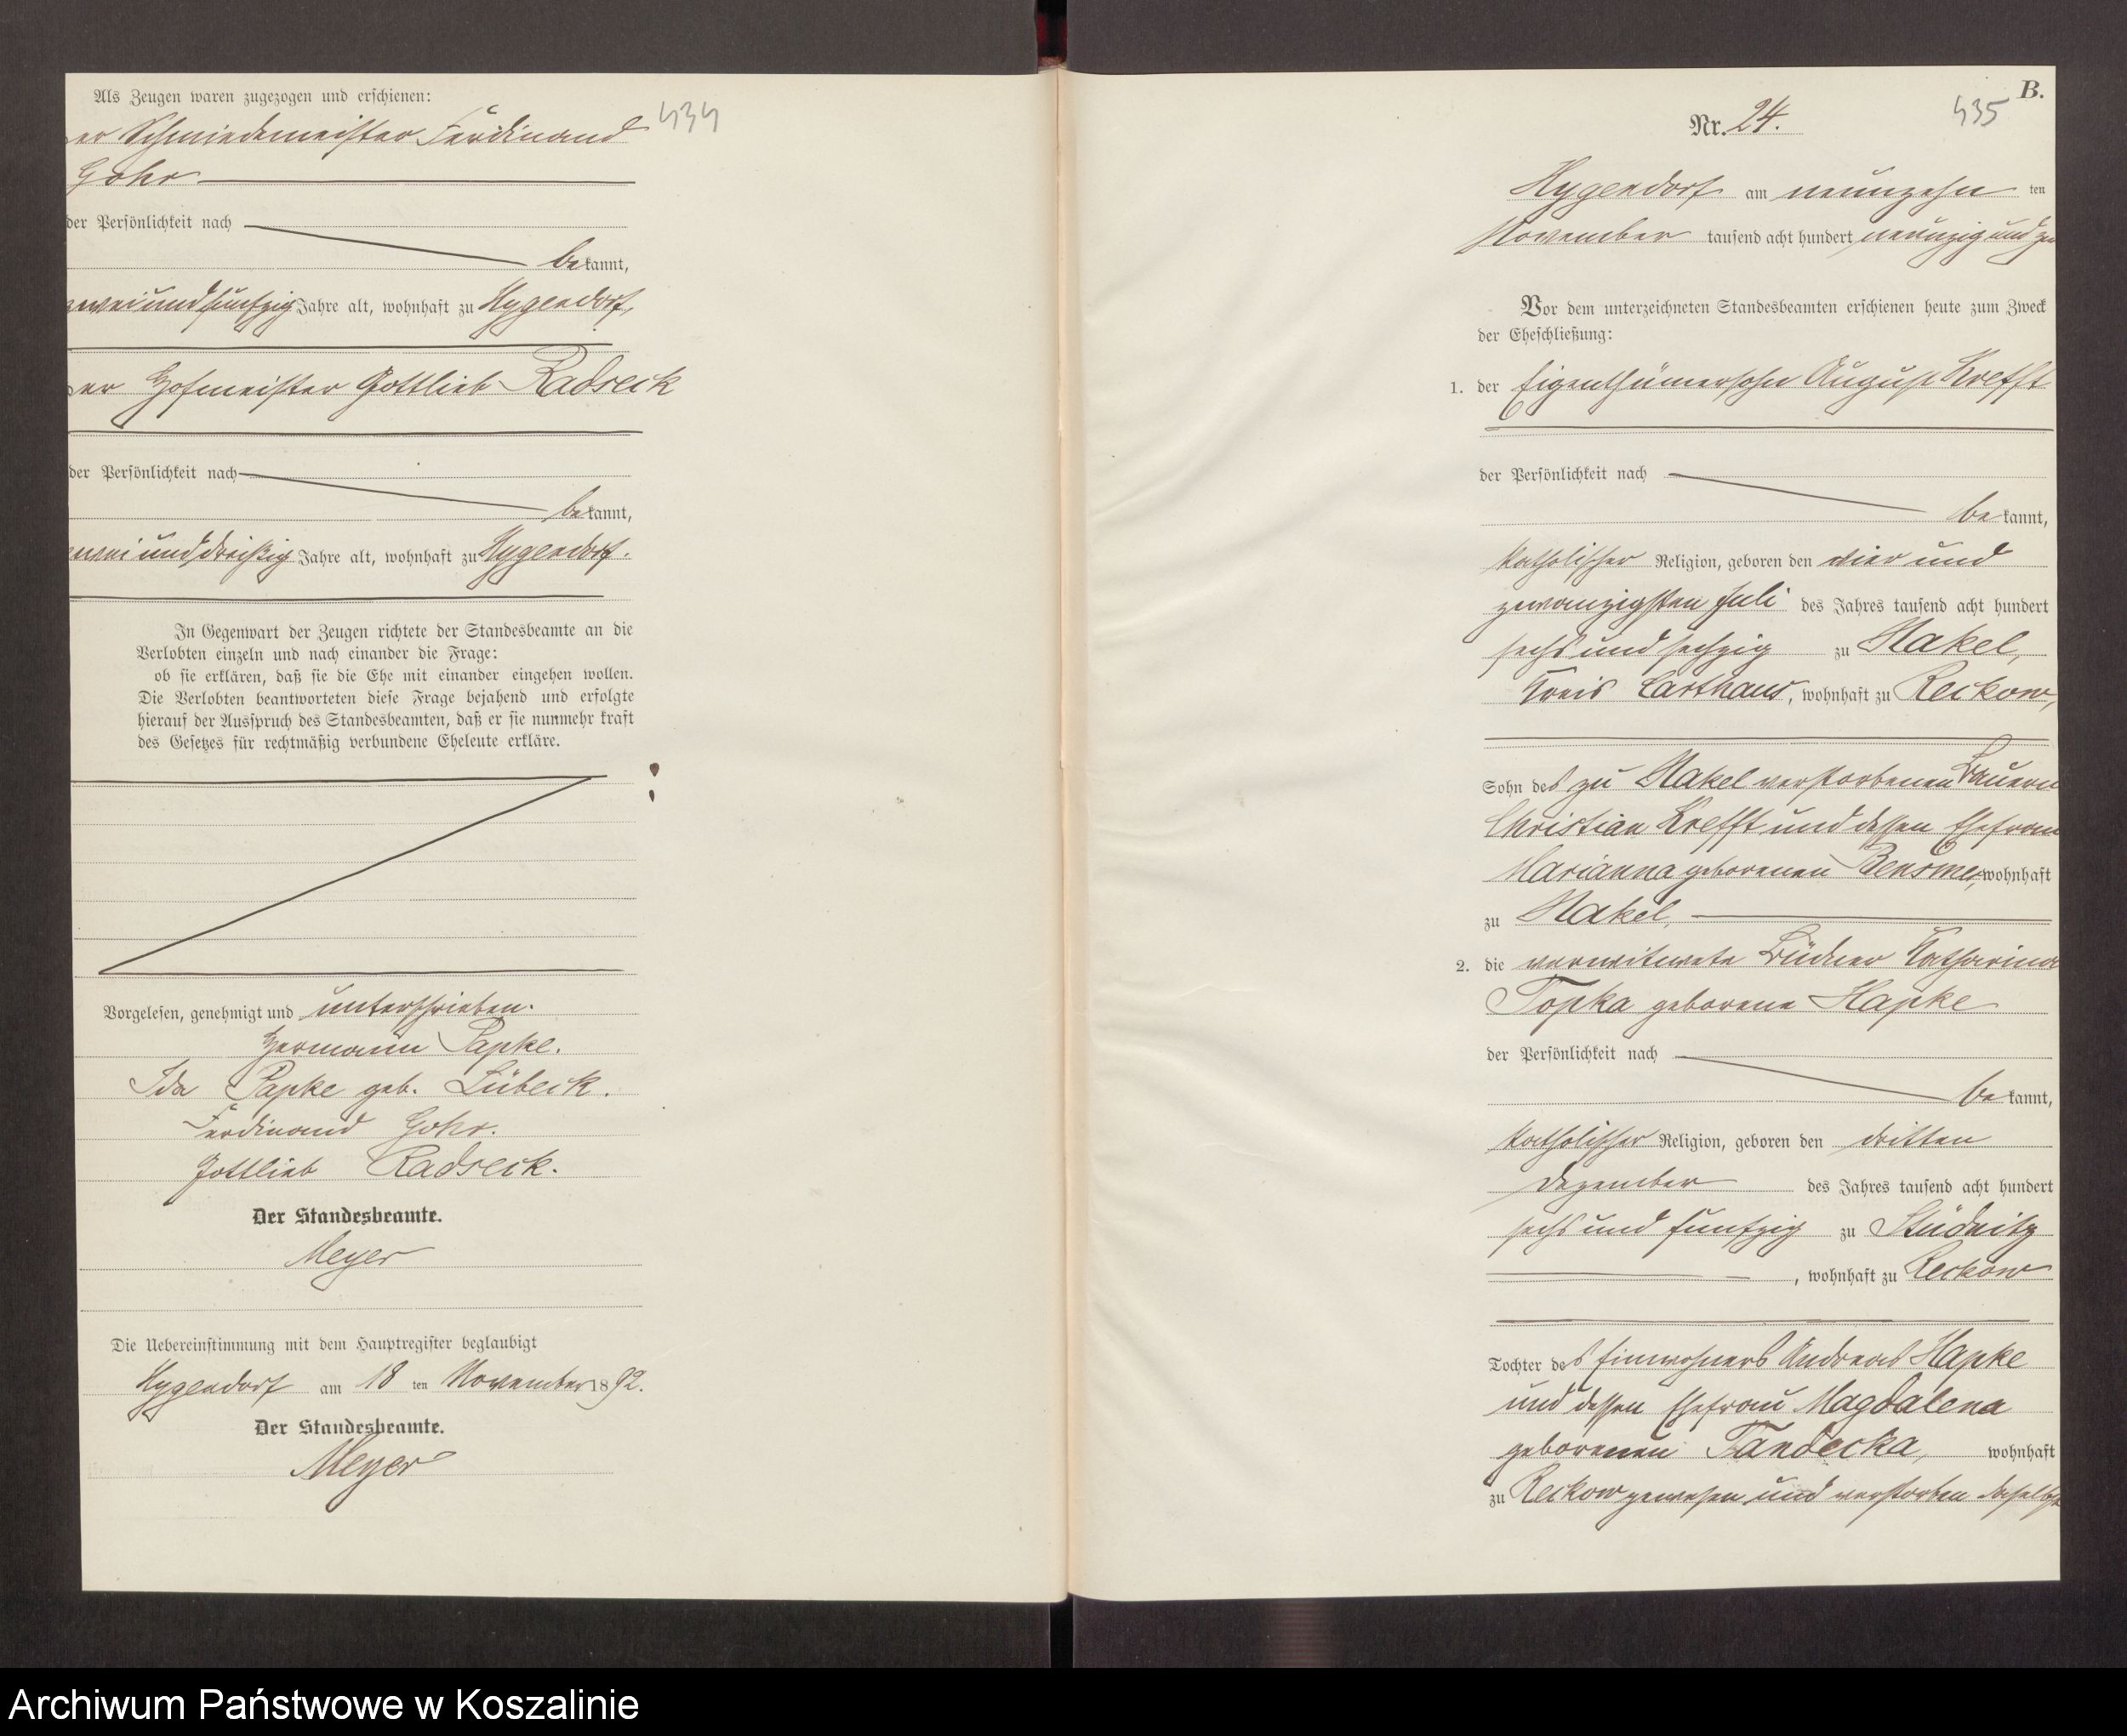 Als Zeugen waren zugezogen und erschienen:
er Schmiedemeister Ferdinand
434
Gohr
der Persönlichkeit nach
bekannt,
zwei und fünfzig Jahre alt, wohnhaft zu Hygendorf,
er Hofmeister Gottlieb Radseck
der Persönlichkeit nach
bekannt,
zwei und dreißig Jahre alt, wohnhaft zu Hygendorf.
In Gegenwart der Zeugen richtete der Standesbeamte an die
Verlobten einzeln und nach einander die Frage:
ob sie erklären, daß sie die Ehe mit einander eingehen wollen.
Die Verlobten beantworteten diese Frage bejahend und erfolgte
hierauf der Ausspruch des Standesbeamten, daß er sie nunmehr kraft
des Gesetzes für rechtmäßig verbundene Eheleute erkläre.
Vorgelesen, genehmigt und unterschrieben.
Hermann Papke.
Ida Papke geb. Lübeck.
Ferdinand Gohr.
Gottlieb Radseck.
Der Standesbeamte.
Meyer
Die Uebereinstimmung mit dem Hauptregister beglaubigt
Hygendorf am 18 ten November 1892.
Der Standesbeamte.
Meyer
B.
435
Nr. 24.
Hygendorf am neunzehn ten
November tausend acht hundert neunzig und zw
Vor dem unterzeichneten Standesbeamten erschienen heute zum Zweck
der Eheschließung:
1. der Eigenthümersohn August Krefft
der Persönlichkeit nach
bekannt,
katholischer Religion, geboren den vier und
zwanzigsten Juli des Jahres tausend acht hundert
sechs und sechzig zu Nakel,
Kreis Carthaus, wohnhaft zu Reckow,
Sohn des zu Nakel verstorbenen Bauern
Christian Krefft und dessen Ehefrau
Marianna geborenen wohnhaft
zu Nakel,
2. die verwitwete Büdner Katharina
Topka geborene Hapke
der Persönlichkeit nach
bekannt,
katholischer Religion, geboren den dritten
Dezember des Jahres tausend acht hundert
sechs und fünfzig zu Stüdnitz
, wohnhaft zu Reckow
Tochter des Einwohners Andreas Hapke
und dessen Ehefrau Magdalena
geborenen Tandecka, wohnhaft
zu Reckow gewesen und verstorben daselbst
Archiwum Państwowe w Koszalinie